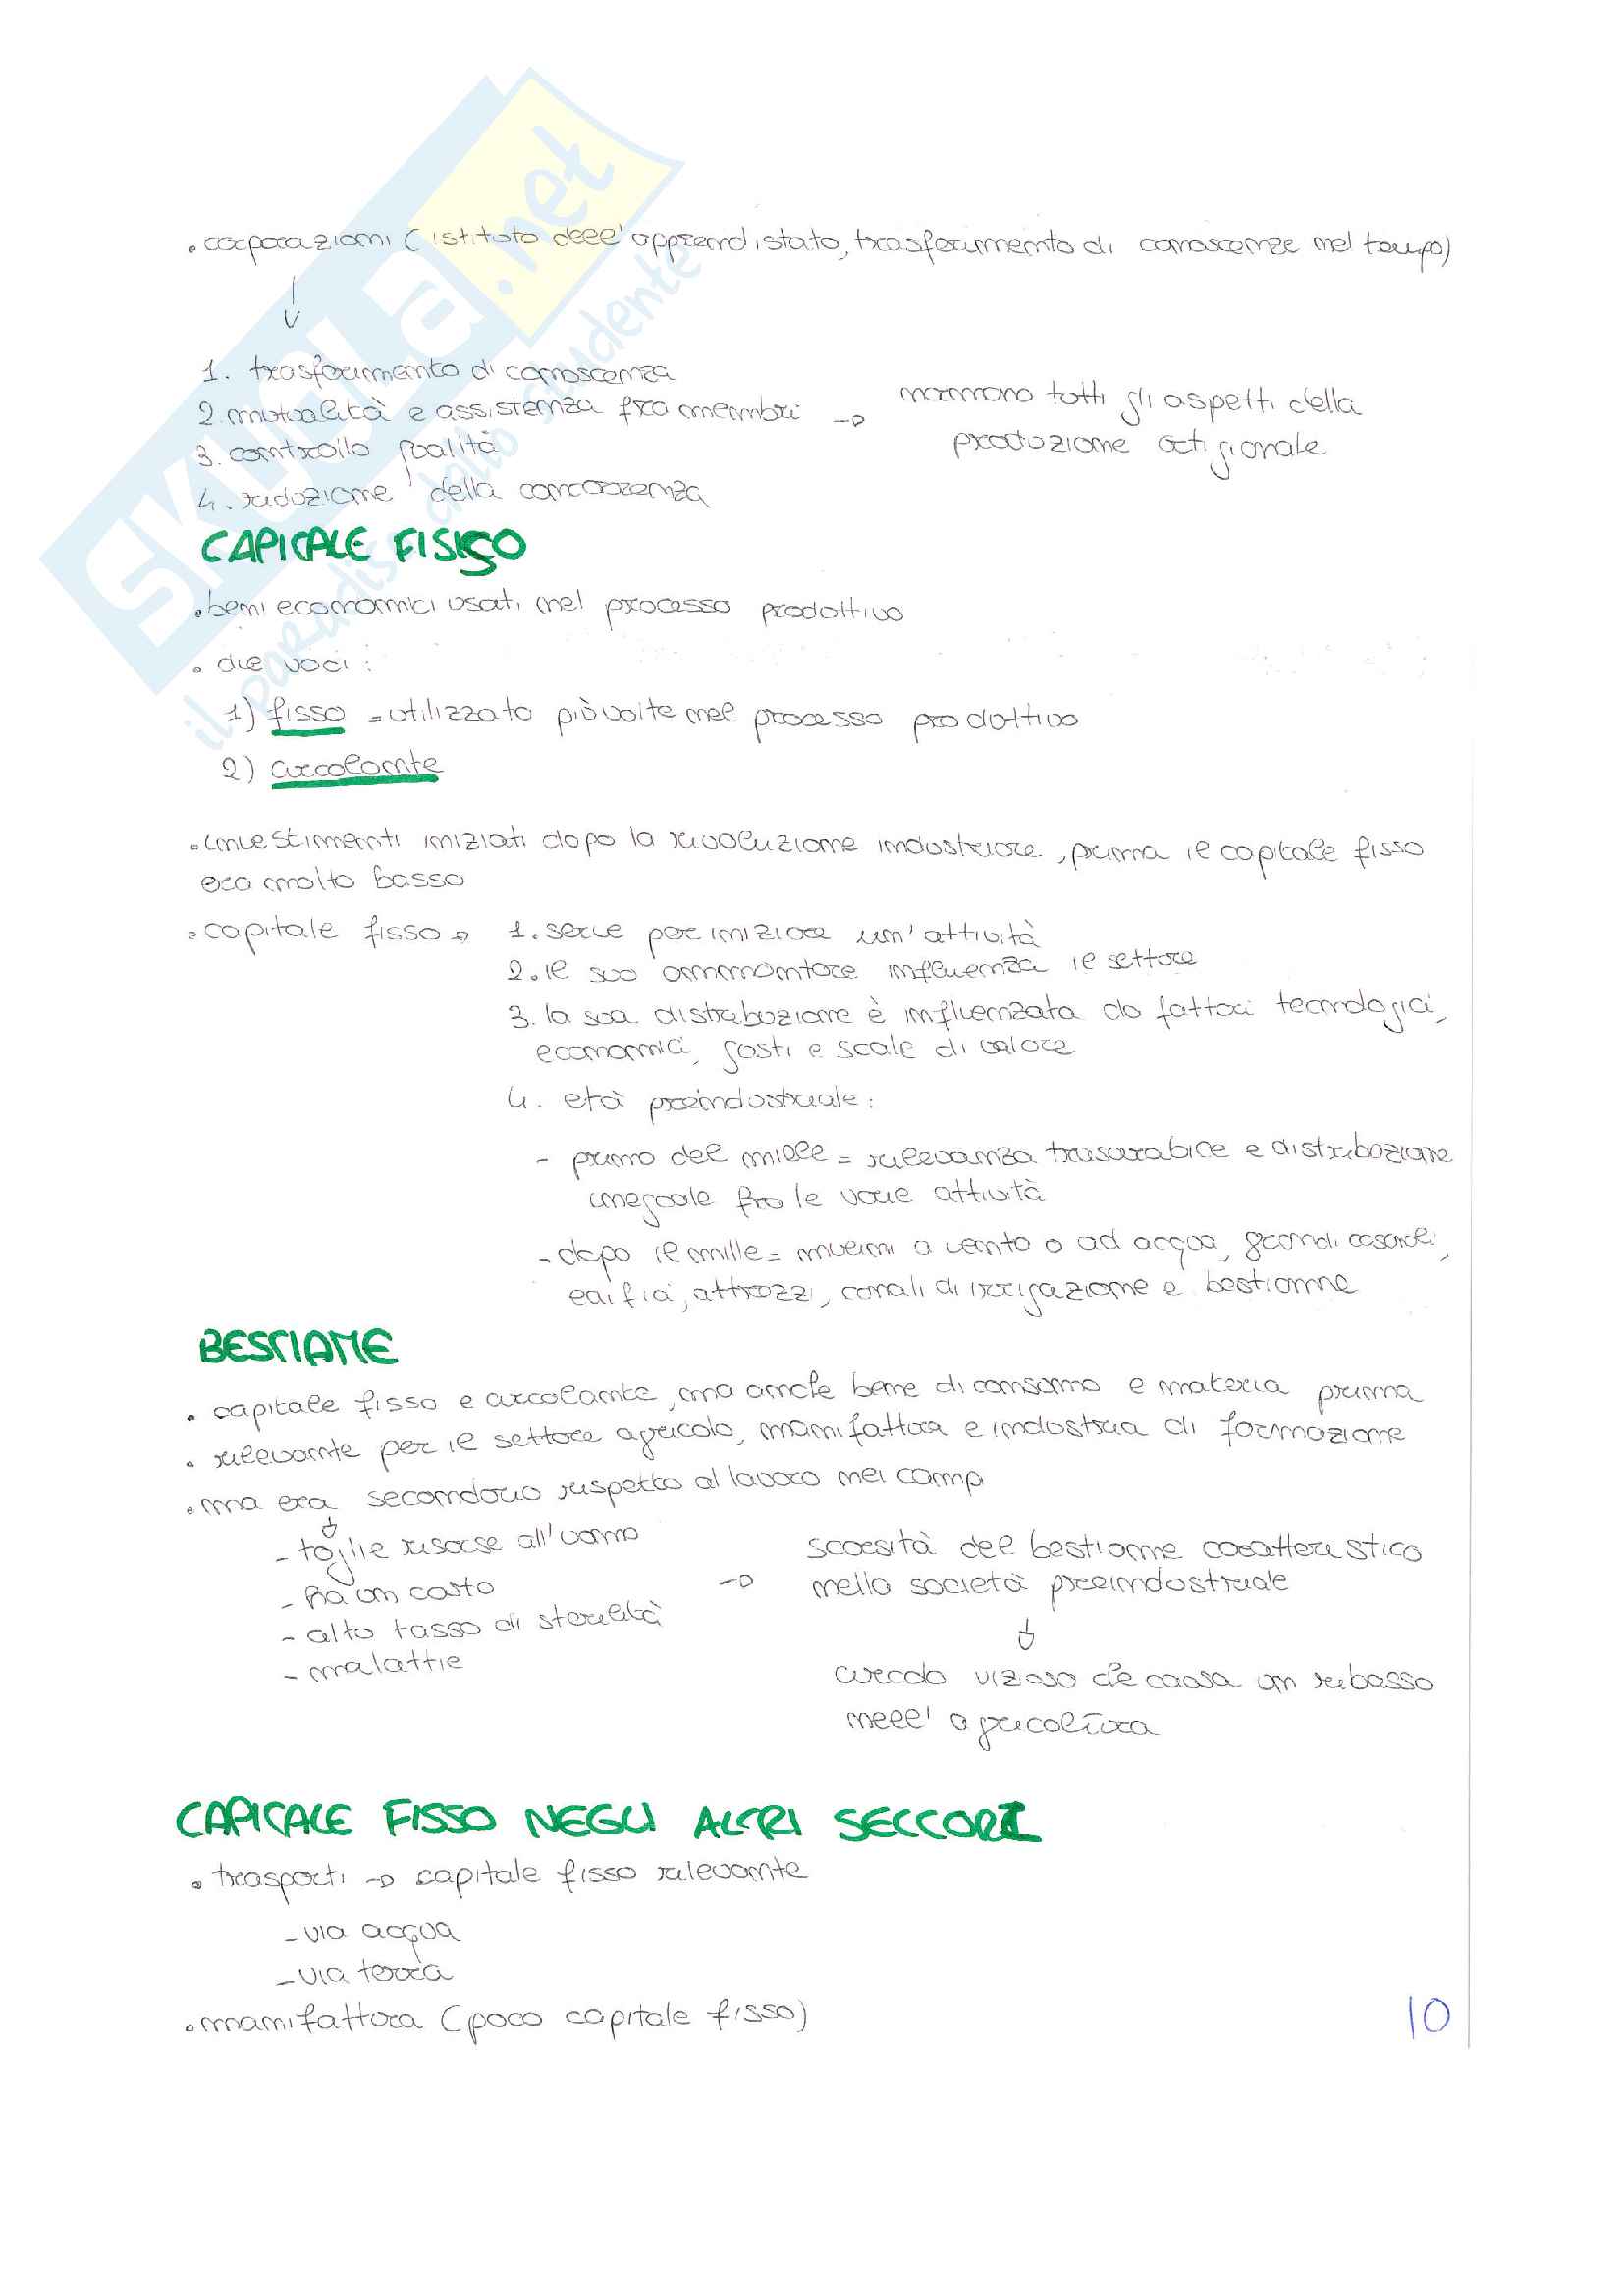 . corporazioni (istituto dell'apprendistato, trasferimento di conoscenze nel tempo)
↓
1. trasferimento di conoscenza
2. mutualità e assistenza fra membri →
3. controllo qualità
4. riduzione della concorrenza
normano tutti gli aspetti della
produzione artigianale
CAPITALE FISICO
. beni economici usati nel processo produttivo
. due voci:
1) fisso = utilizzato più volte nel processo produttivo
2) circolante
. investimenti iniziati dopo la rivoluzione industriale, prima il capitale fisso
era molto basso
. capitale fisso → 1. serve per iniziare un'attività
2. il suo ammontare influenza il settore
3. la sua distribuzione è influenzata da fattori tecnologici,
economici, gusti e scale di valore
4. età preindustriale:
- prima del mille = rilevanza trascurabile e distribuzione
ineguale fra le varie attività
- dopo il mille = mulini a vento o ad acqua, grandi casardi,
edifici, attrezzi, canali di irrigazione e bestiame
BESTIAME
. capitale fisso e circolante, ma anche bene di consumo e materia prima
. rilevante per il settore agricolo, manifattura e industria di formazione
. ma era secondario rispetto al lavoro nei campi
↓
- toglie risorse all'uomo
- ha un costo →
- alto tasso di sterilità
- malattie
scarsità del bestiame caratteristico
nella società preindustriale
↓
circolo vizioso che causa un ribasso
nell'agricoltura
CAPITALE FISSO NEGLI ALTRI SETTORI
. trasporti → capitale fisso rilevante
- via acqua
- via terra
. manifattura (poco capitale fisso)
10
SKUOLA.net
il paradiso dello studente